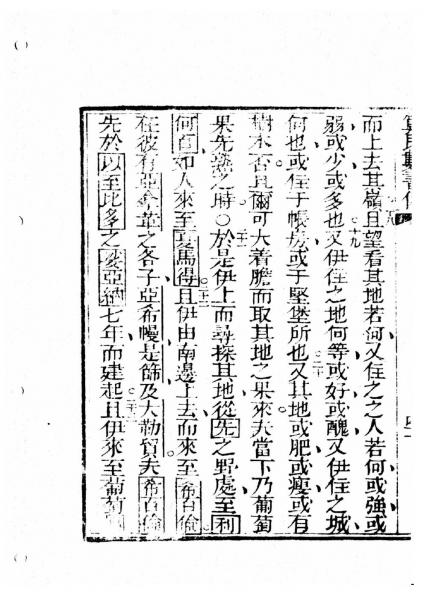 而上去其嶺且望看其地若何又住之之人若何或強或
十九
弱或少或多也又伊住之地何等或好或醜又伊住之城
二十
何也或住于帳房或于堅堡所也又其地或肥或瘦或有
樹木否且爾可大着膽而取其地之果來夫當下乃葡萄
果先熟之時○於是伊上而尋探其地從先之野處至利
何百如人來至夏馬得且伊由南邊上去而來至希百倫
在彼有亞拿革之各子亞希幔是篩及大勒買夫希百倫
先於以至比多之唆亞納七年而建起且伊來至葡萄